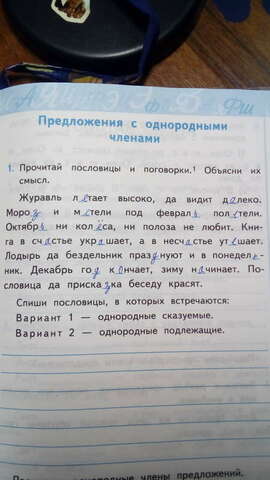 Предложения с однородными
членами
1. Прочитай пословицы и поговорки.¹ Объясни их
смысл.
Журавль летает высоко, да видит далеко.
Мороз и метели под февраль полетели.
Октябрь ни колёса, ни полоза не любит. Кни-
га в счастье украшает, а в несчастье утешает.
Лодырь да бездельник празднуют и в понедель-
ник. Декабрь год кончает, зиму начинает. По-
словица да присказка беседу красят.
Спиши пословицы, в которых встречаются:
Вариант 1 — однородные сказуемые.
Вариант 2 — однородные подлежащие.